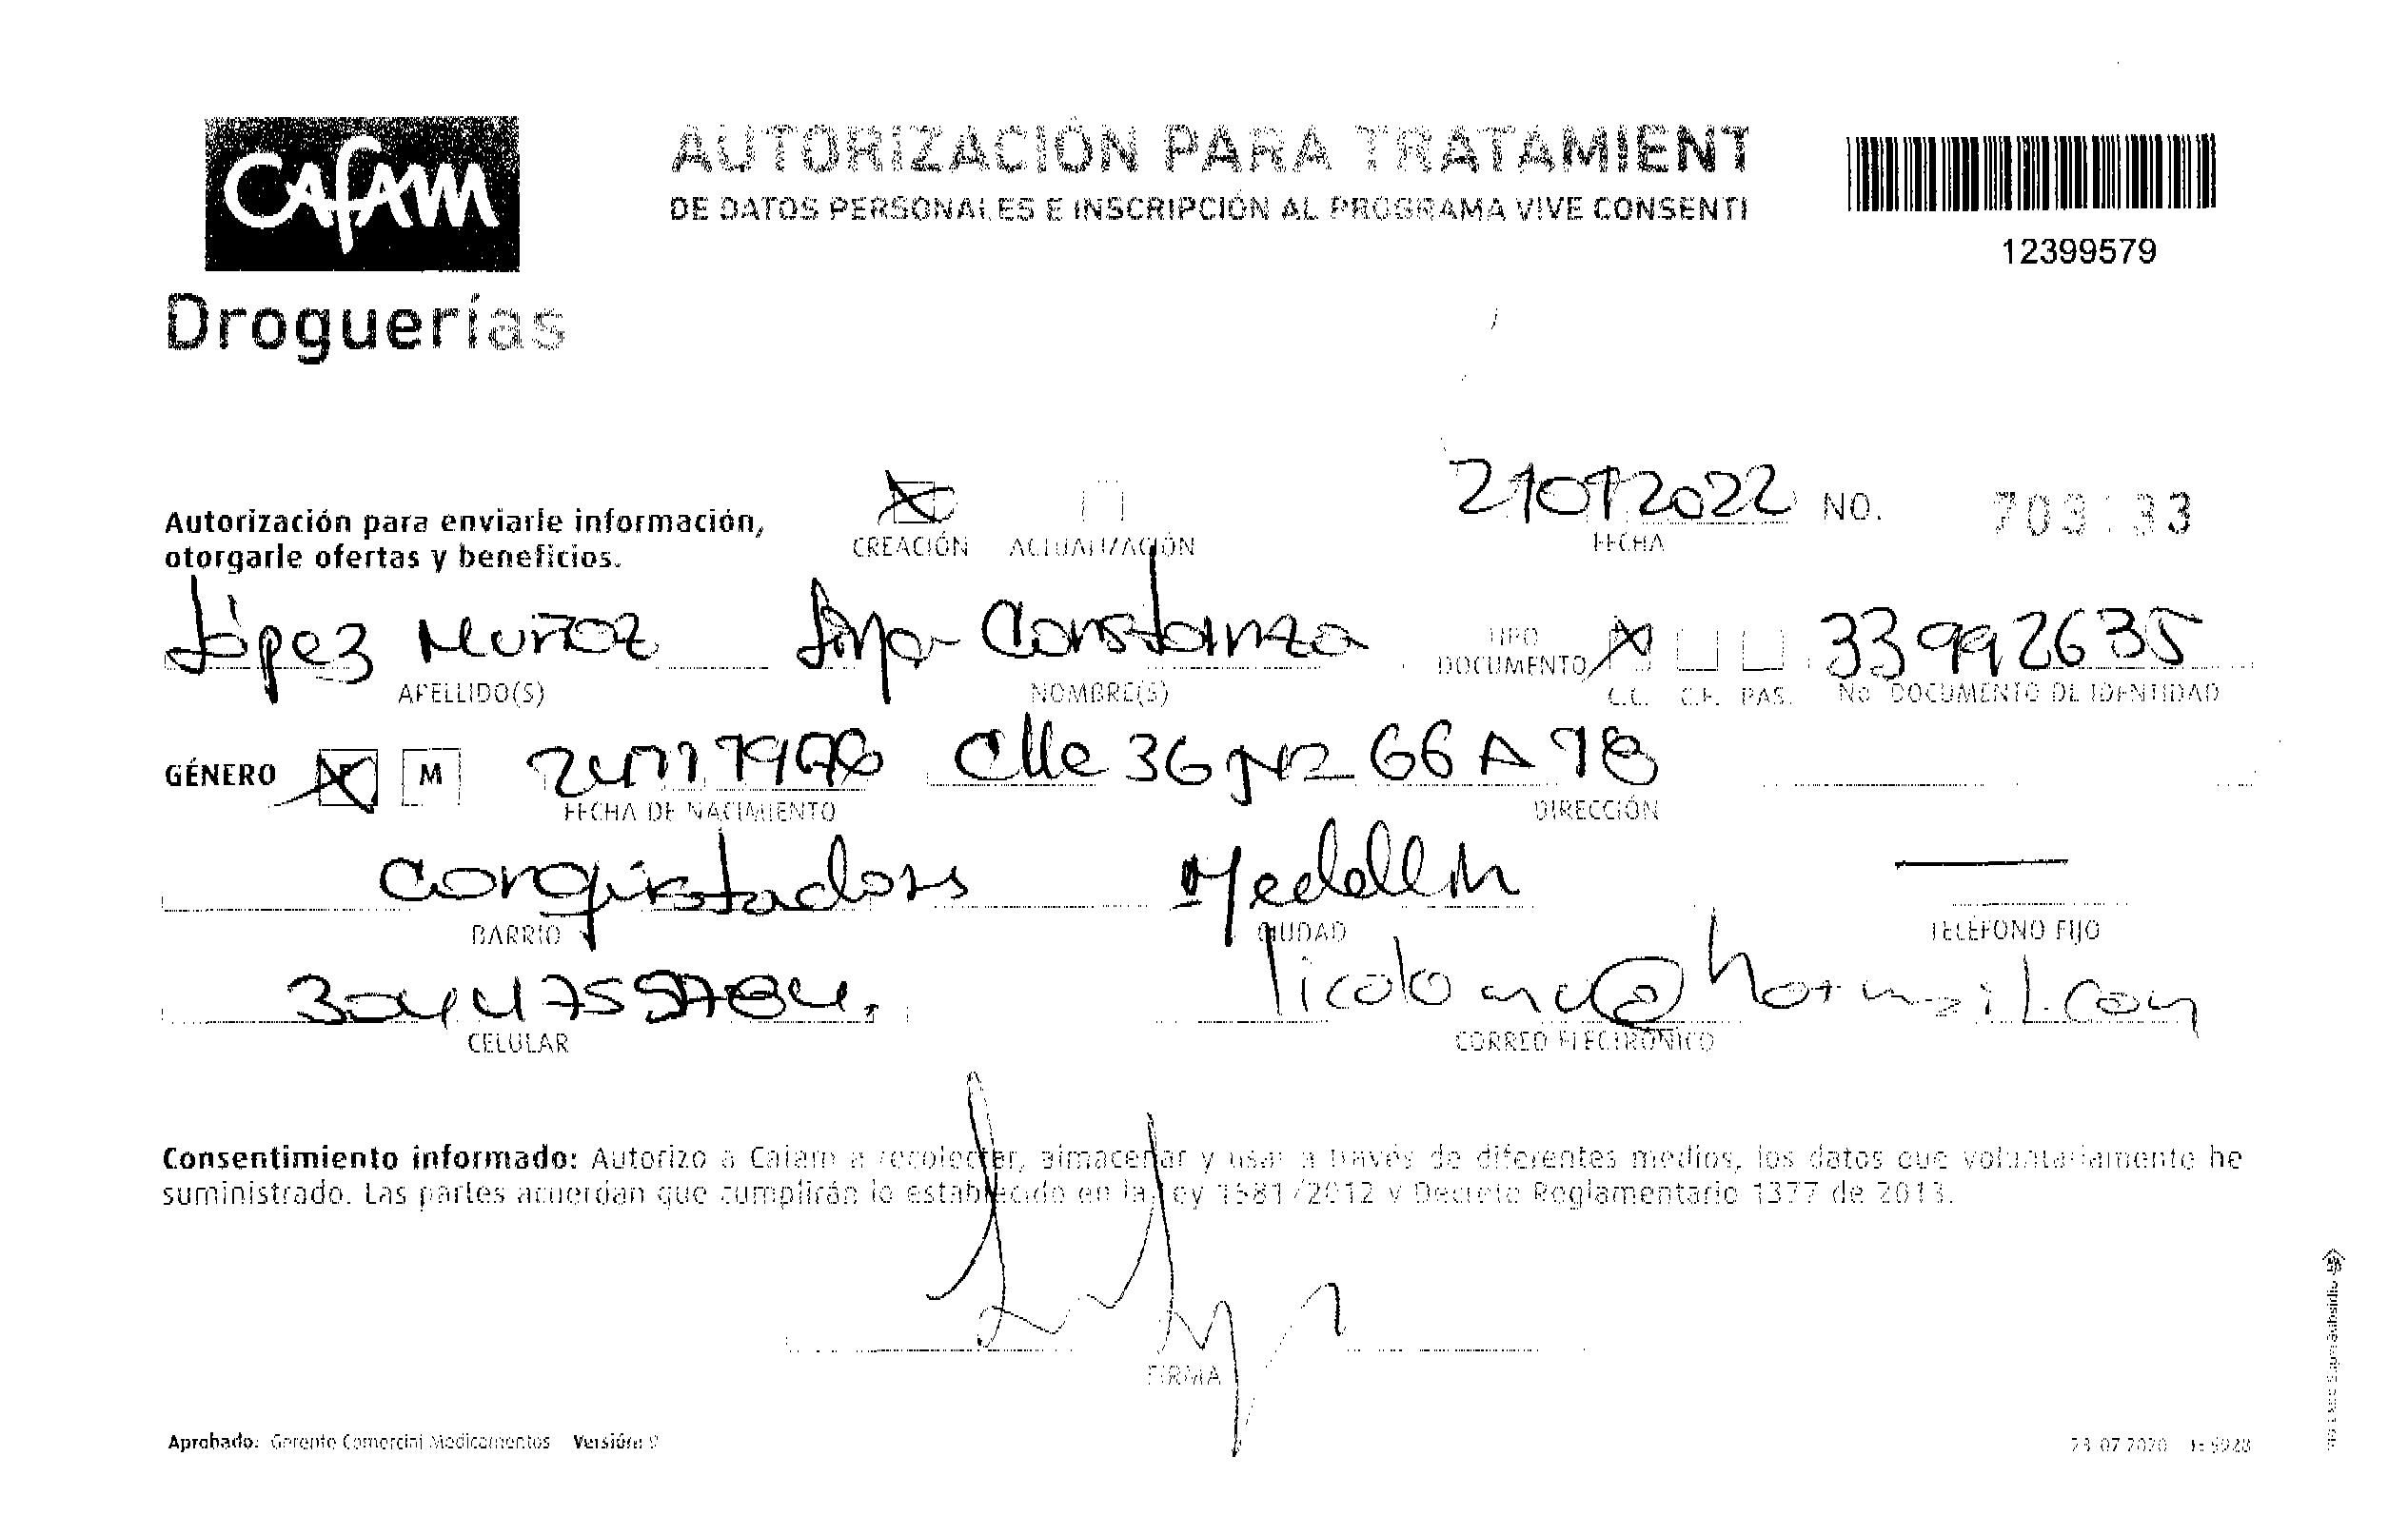 CAFAM
Droguerías
AUTORIZACIÓN PARA TRATAMIENT
DE DATOS PERSONALES E INSCRIPCIÓN AL PROGRAMA VIVE CONSENTI
12399579
Autorización para enviarle información,
otorgarle ofertas y beneficios.
CREACIÓN ACTUALIZACIÓN
21012022 NO.
FECHA
López Muñoz Constanza TIPO DOCUMENTO 33992635
APELLIDO(S) NOMBRE(S) C.C. C.E. PAS. No DOCUMENTO DE IDENTIDAD
GÉNERO F M Clle 36 66 A 18
FECHA DE NACIMIENTO DIRECCIÓN
Conquistadores Medellin
BARRIO CIUDAD TELÉFONO FIJO
CELULAR CORREO ELECTRÓNICO
Consentimiento informado: Autorizo a Cafam a recolectar, almacenar y usar a través de diferentes medios, los datos que voluntariamente he
suministrado. Las partes acuerdan que cumplirán lo establecido en la Ley 1581/2012 y Decreto Reglamentario 1377 de 2013.
FIRMA
Aprobado: Gerente Comercial Medicamentos Versión: 9
23 07 2020